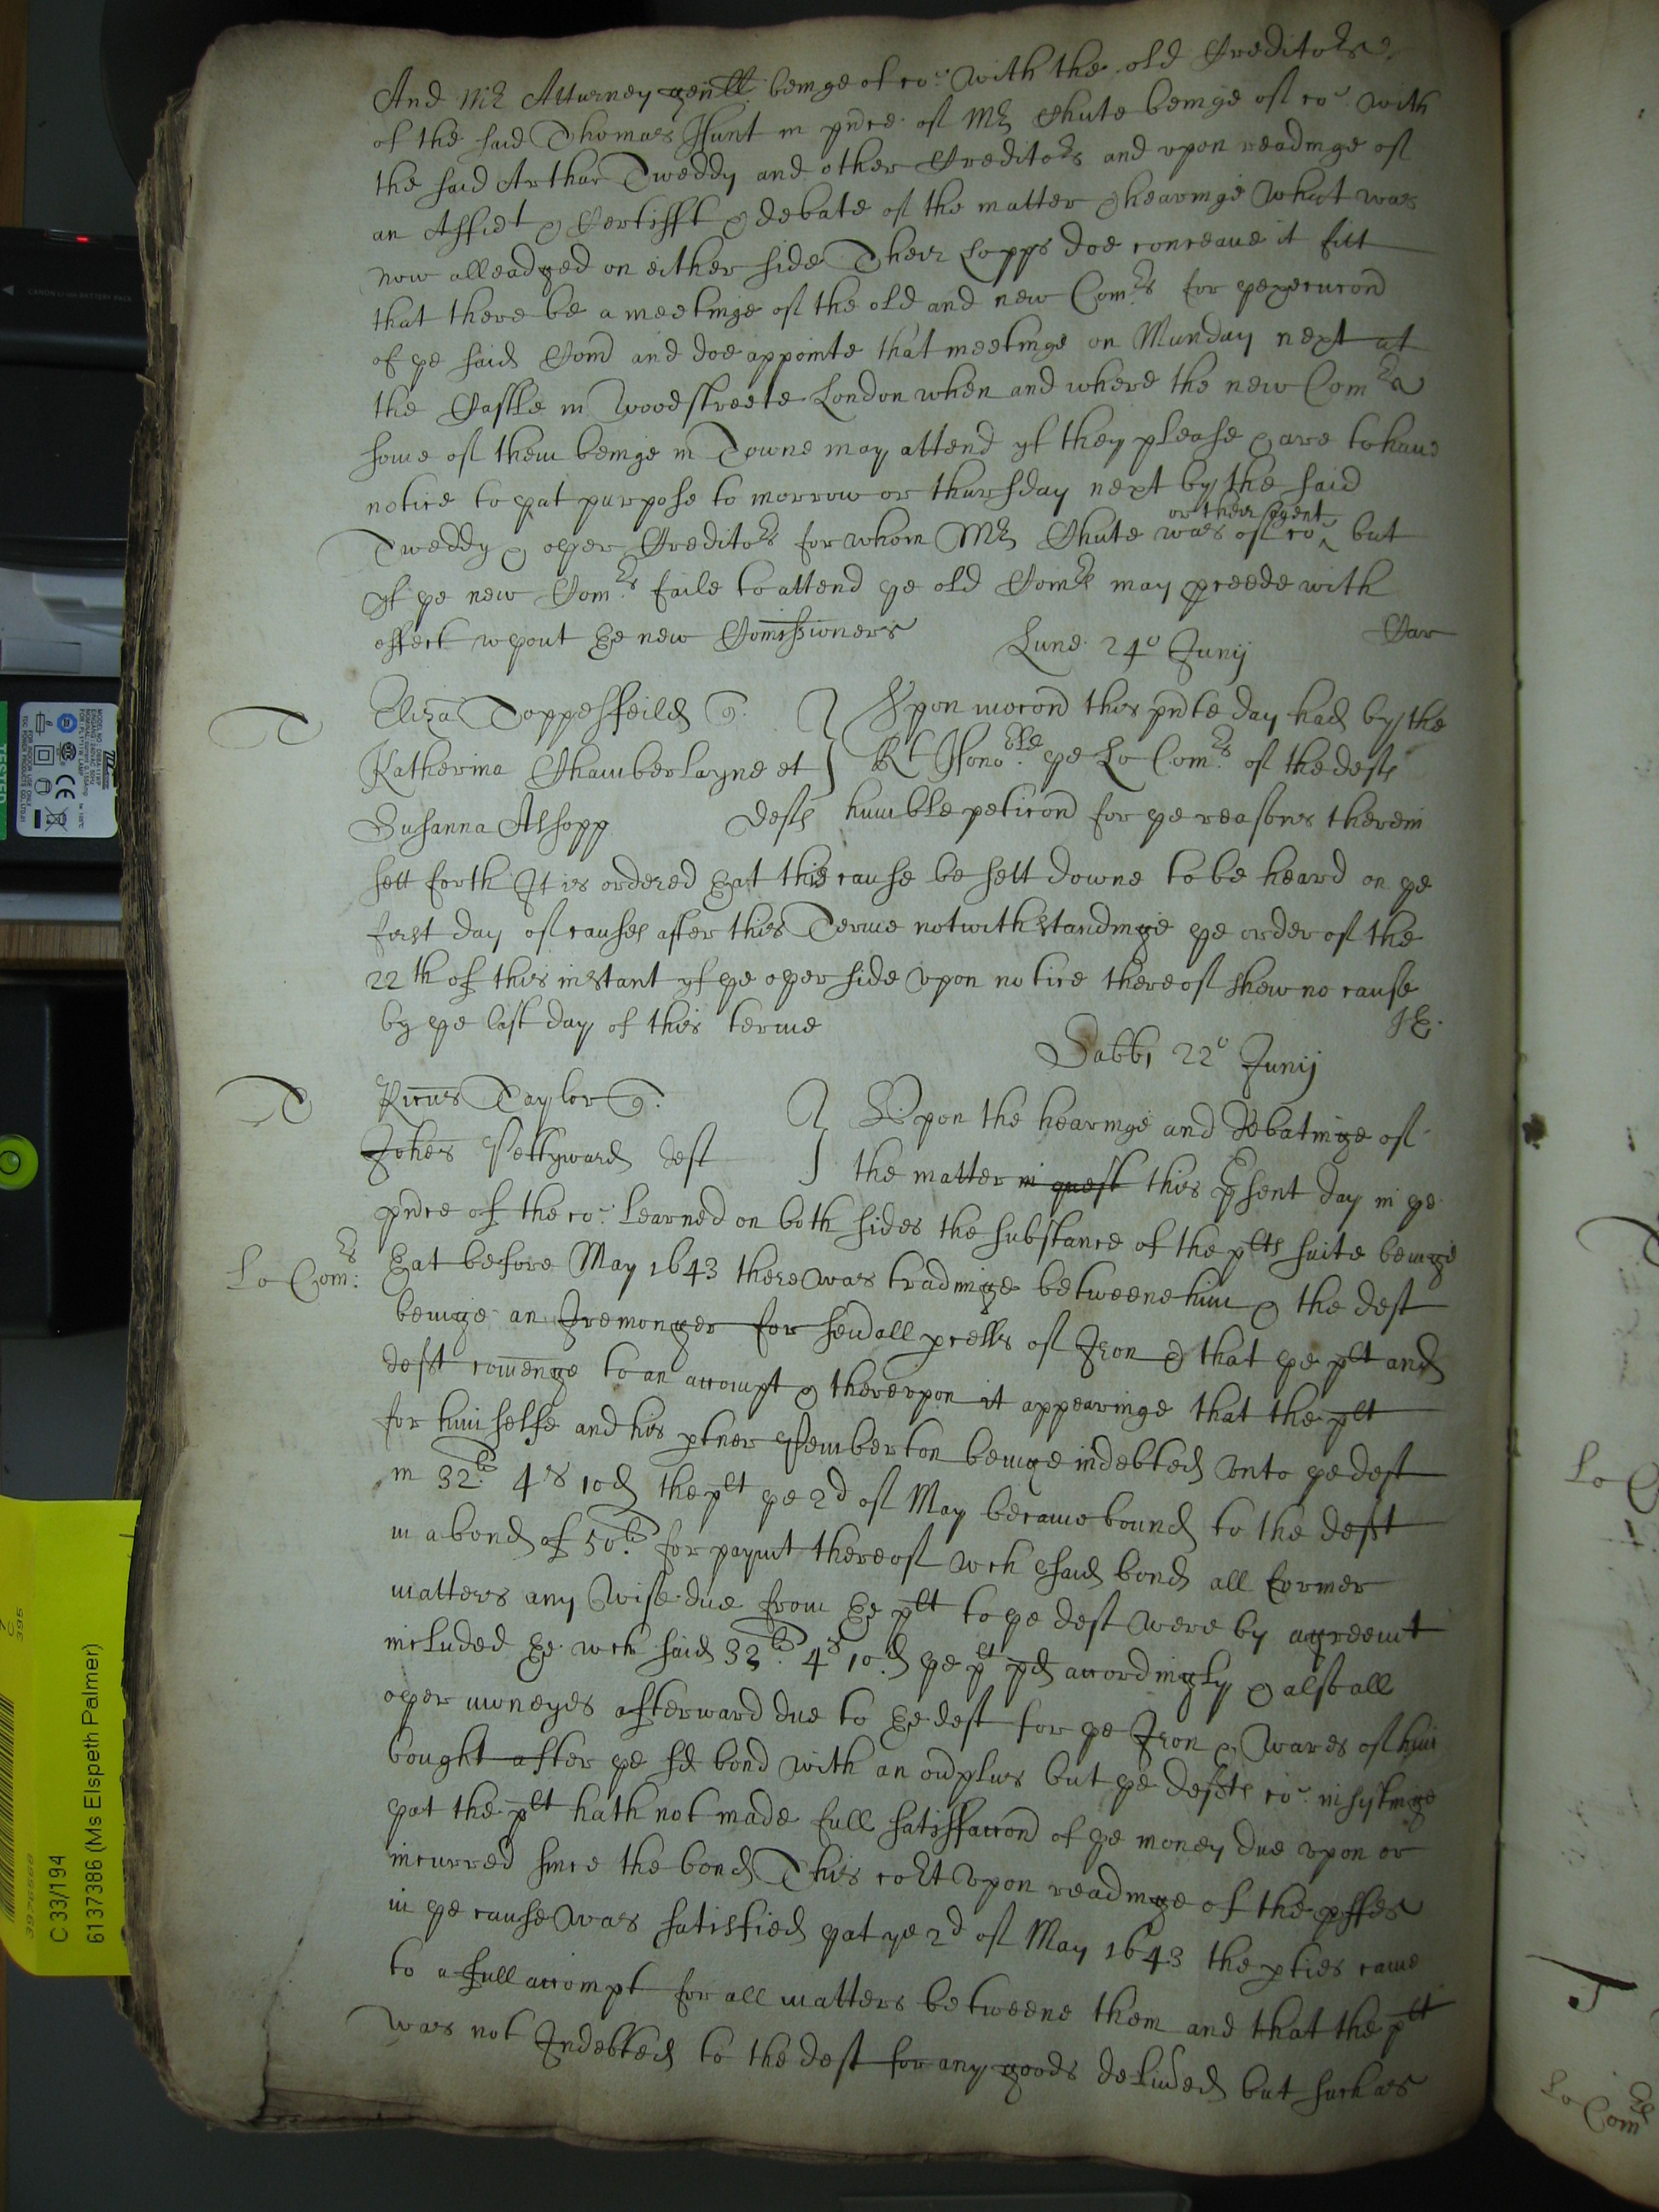 And Mr Atturney genll beinge of co: with the old Creditors
of the said Thomas Hunt in pnce of Mr Chute beinge of co: with
the said Arthur Tweddy and other Creditors and vpon readinge of
an Affidt & Certifft & debate of the matter & hearinge what was
now alleadged on either side Their Lopps doe conceaue it fitt
that there be a meetinge of the old and new Comrs for ye execucon
of ye said Com and doe appointe that meetinge on Munday next at
the Castle in Woodstreete London when and where the new Comrs
some of them beinge in Towne may attend yf they please & are to haue
notice to yat purpose to morrow or thursday next by the said
or their Agent
Tweddy & oyer Creditors for whom Mr Chute was of co: but
yf ye new Comrs faile to attend ye old Comrs may pceede with
effect wyout ye new Comissioners
Car
Lune 24o Junij
T
Eliza Toppesfeild q:
Katherina Chamberlayne et
Susanna Alsopp defts
Vpon mocon this pnte day had by the
Rt Honoble ye Lo Comrs of the defts
humble peticon for ye reasons therein
sett forth It is ordered yat this cause be sett downe to be heard on ye
first day of causes after this Terme notwithstandinge ye order of the
22th of this instant yf ye oyer side vpon notice thereof shew no cause
by ye last day of this terme
Sabbi 22o Junij
T
Ricus Taylor q:
Johes Pettyward deft
Vpon the hearinge and debatinge of
the matter in quest this psent day in ye
pnce of the co: learned on both sides the substance of the plts suite beinge
Lo Comrs:
yat before May 1643 there was tradinge betweene him & the deft
beinge an Iremonger for seuall pcells of Iron & that ye plt and
deft cominge to an accompt & therevpon it appearinge that the plt
for himselfe and his ptner Pemberton beinge indebted vnto ye deft
in 32li 4s 10d the plt ye 2d of May became bound to the deft
in a bond of 50li for paymt thereof wch said bond all former
matters any wise due from ye plt to ye deft were by agreemt
included ye wch said 32li 4s 10d ye plt pd accordingly & also all
oyer moneyes afterward due to ye deft for ye Iron & wares of him
bought after ye sd bond with an ouplus but ye defts co: insystinge
yat the plt hath not made full satisfaccon of ye money due vpon or
incurred since the bond This cort vpon readinge of the pffes
in ye cause was satisfied yat ye 2d of May 1643 the pties came
to a full accompt for all matters betweene them and that the plt
was not Indebted to the deft for any goods deliued but such as
TESTED
CANON LI-ION BATTERY PACK
C 33/194
6137386 (Ms Elspeth Palmer)
39765568
395
Lo Comrs